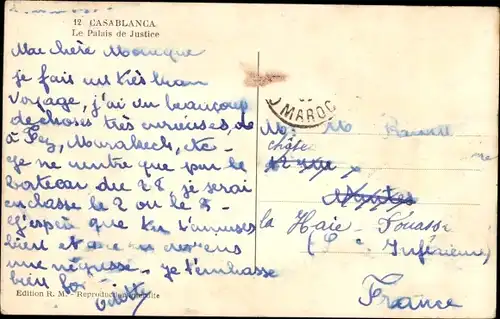 12 CASABLANCA
Le Palais de Justice
Ma chère Monique
je fais un très bon
voyage, j'ai vu beaucoup
de choses très curieuses, de
à Fez, Marakech, etc-
je ne rentre que par le
bateau du 28, je serai
en chasse le 2 ou le 3 -
j'espère que tu t'amuses
bien et que tu
une négresse - je t'embrasse
bien
Edition R. M. - Reproduction interdite
MAROC
M
Nantes
la Haie Fouasse
(Inférieure)
France